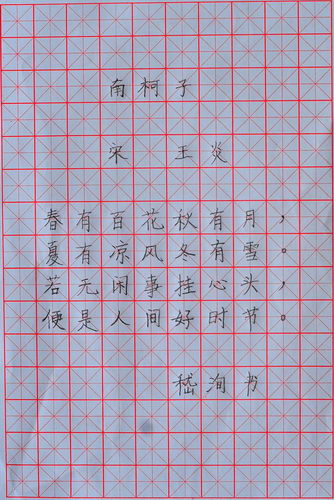 南柯子
宋 王炎
春有百花秋有月，
夏有凉风冬有雪。
若无闲事挂心头，
便是人间好时节。
嵇洵书